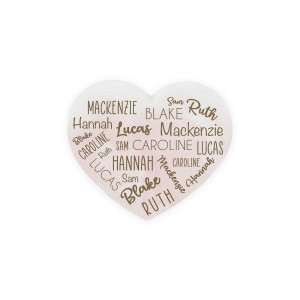 MACKENZIE Sam Ruth
BLAKE
Hannah Lucas Mackenzie
Blake SAM CAROLINE LUCAS
CAROLINE Ruth HANNAH CAROLINE
LUCAS Sam Mackenzie Hannah
Blake
RUTH